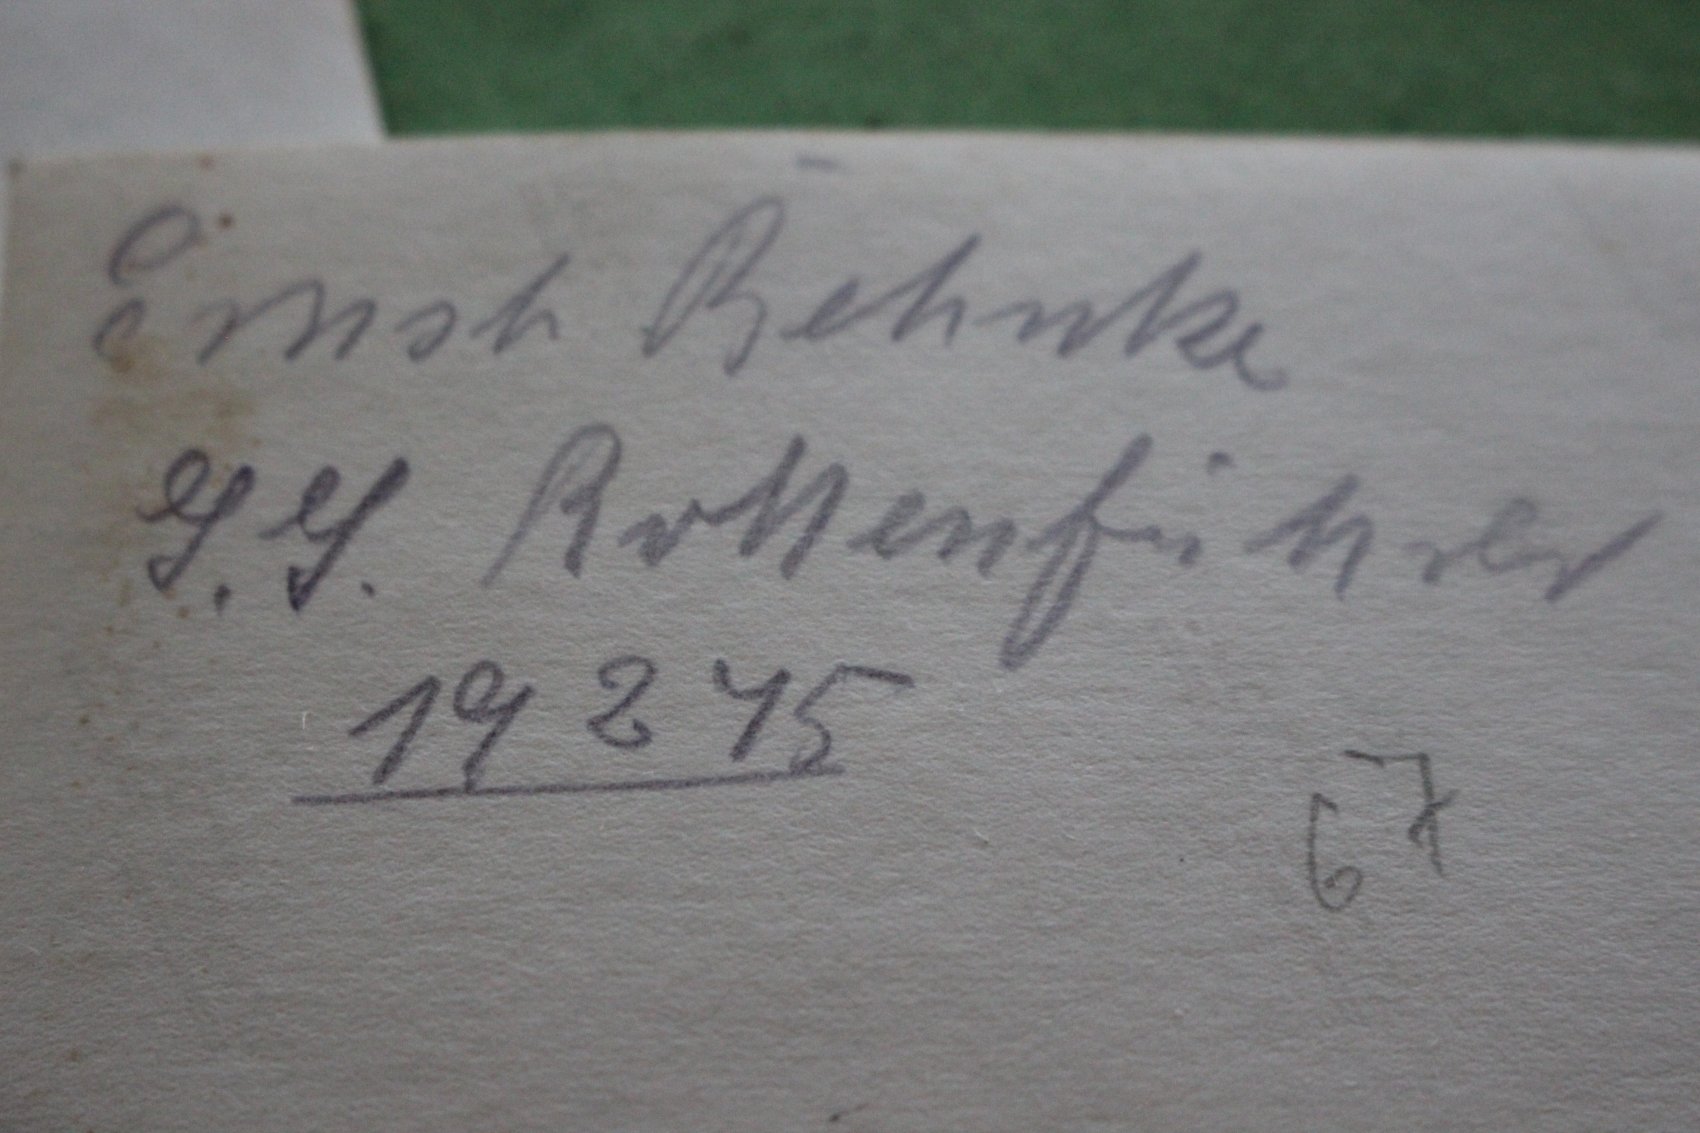 Ernst Behnke
S.S. Rottenführer
19 2 45
67